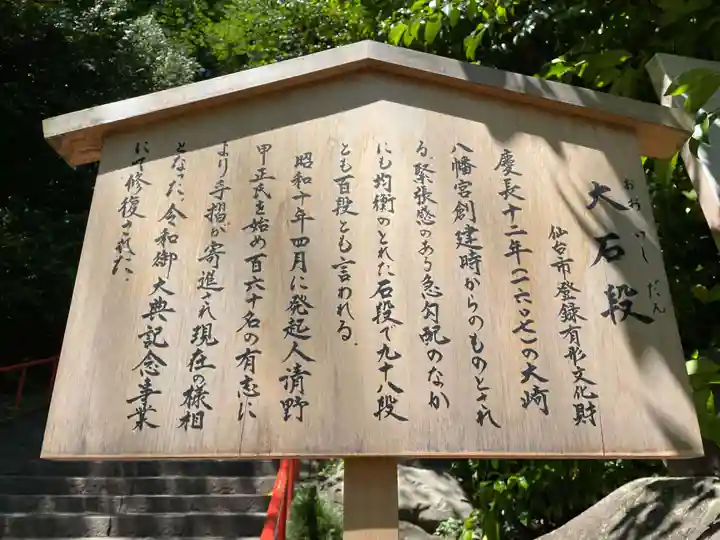 大石段
おおいしだん
仙台市登録有形文化財
慶長十二年(一六〇七)の大崎
八幡宮創建時からのものとされ
る。緊張感のある急勾配のなか
にも均衡のとれた石段で九十八段
とも百段とも言われる。
昭和十年四月に発起人清野
甲正氏を始め百六十名の有志に
より手摺が寄進され現在の様相
となった。令和御大典記念事業
にて修復された。